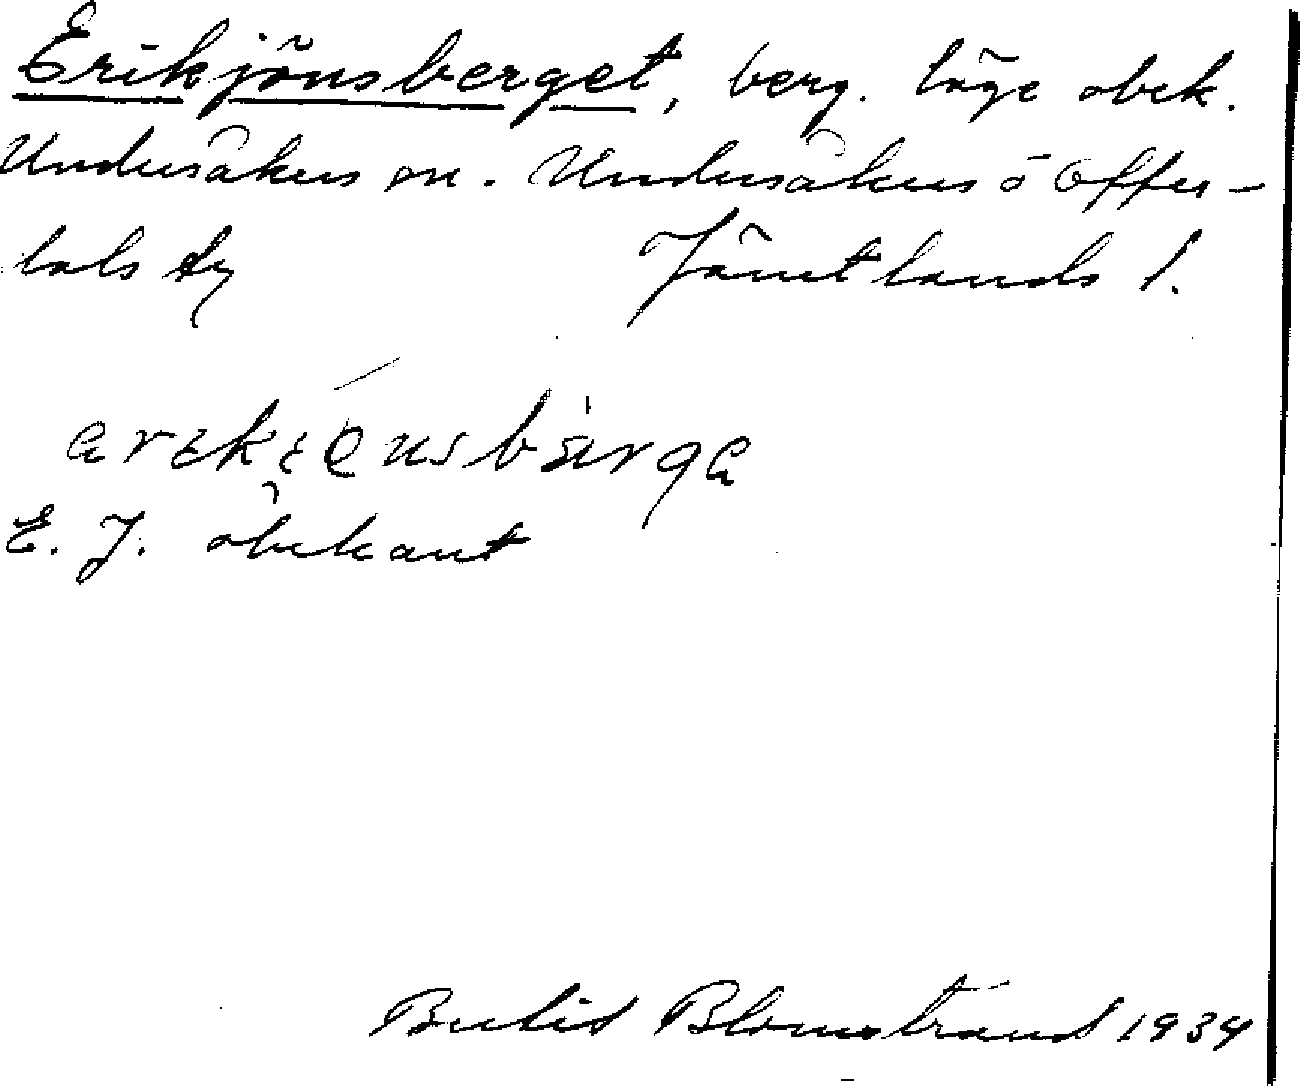 Erikjönsberget, berg. läge obek.
Undersåkers sn. Undersåkers o Offer-
dals tg Jämtlands l.
E. J. obekant
Berlid Blomstrand 1934